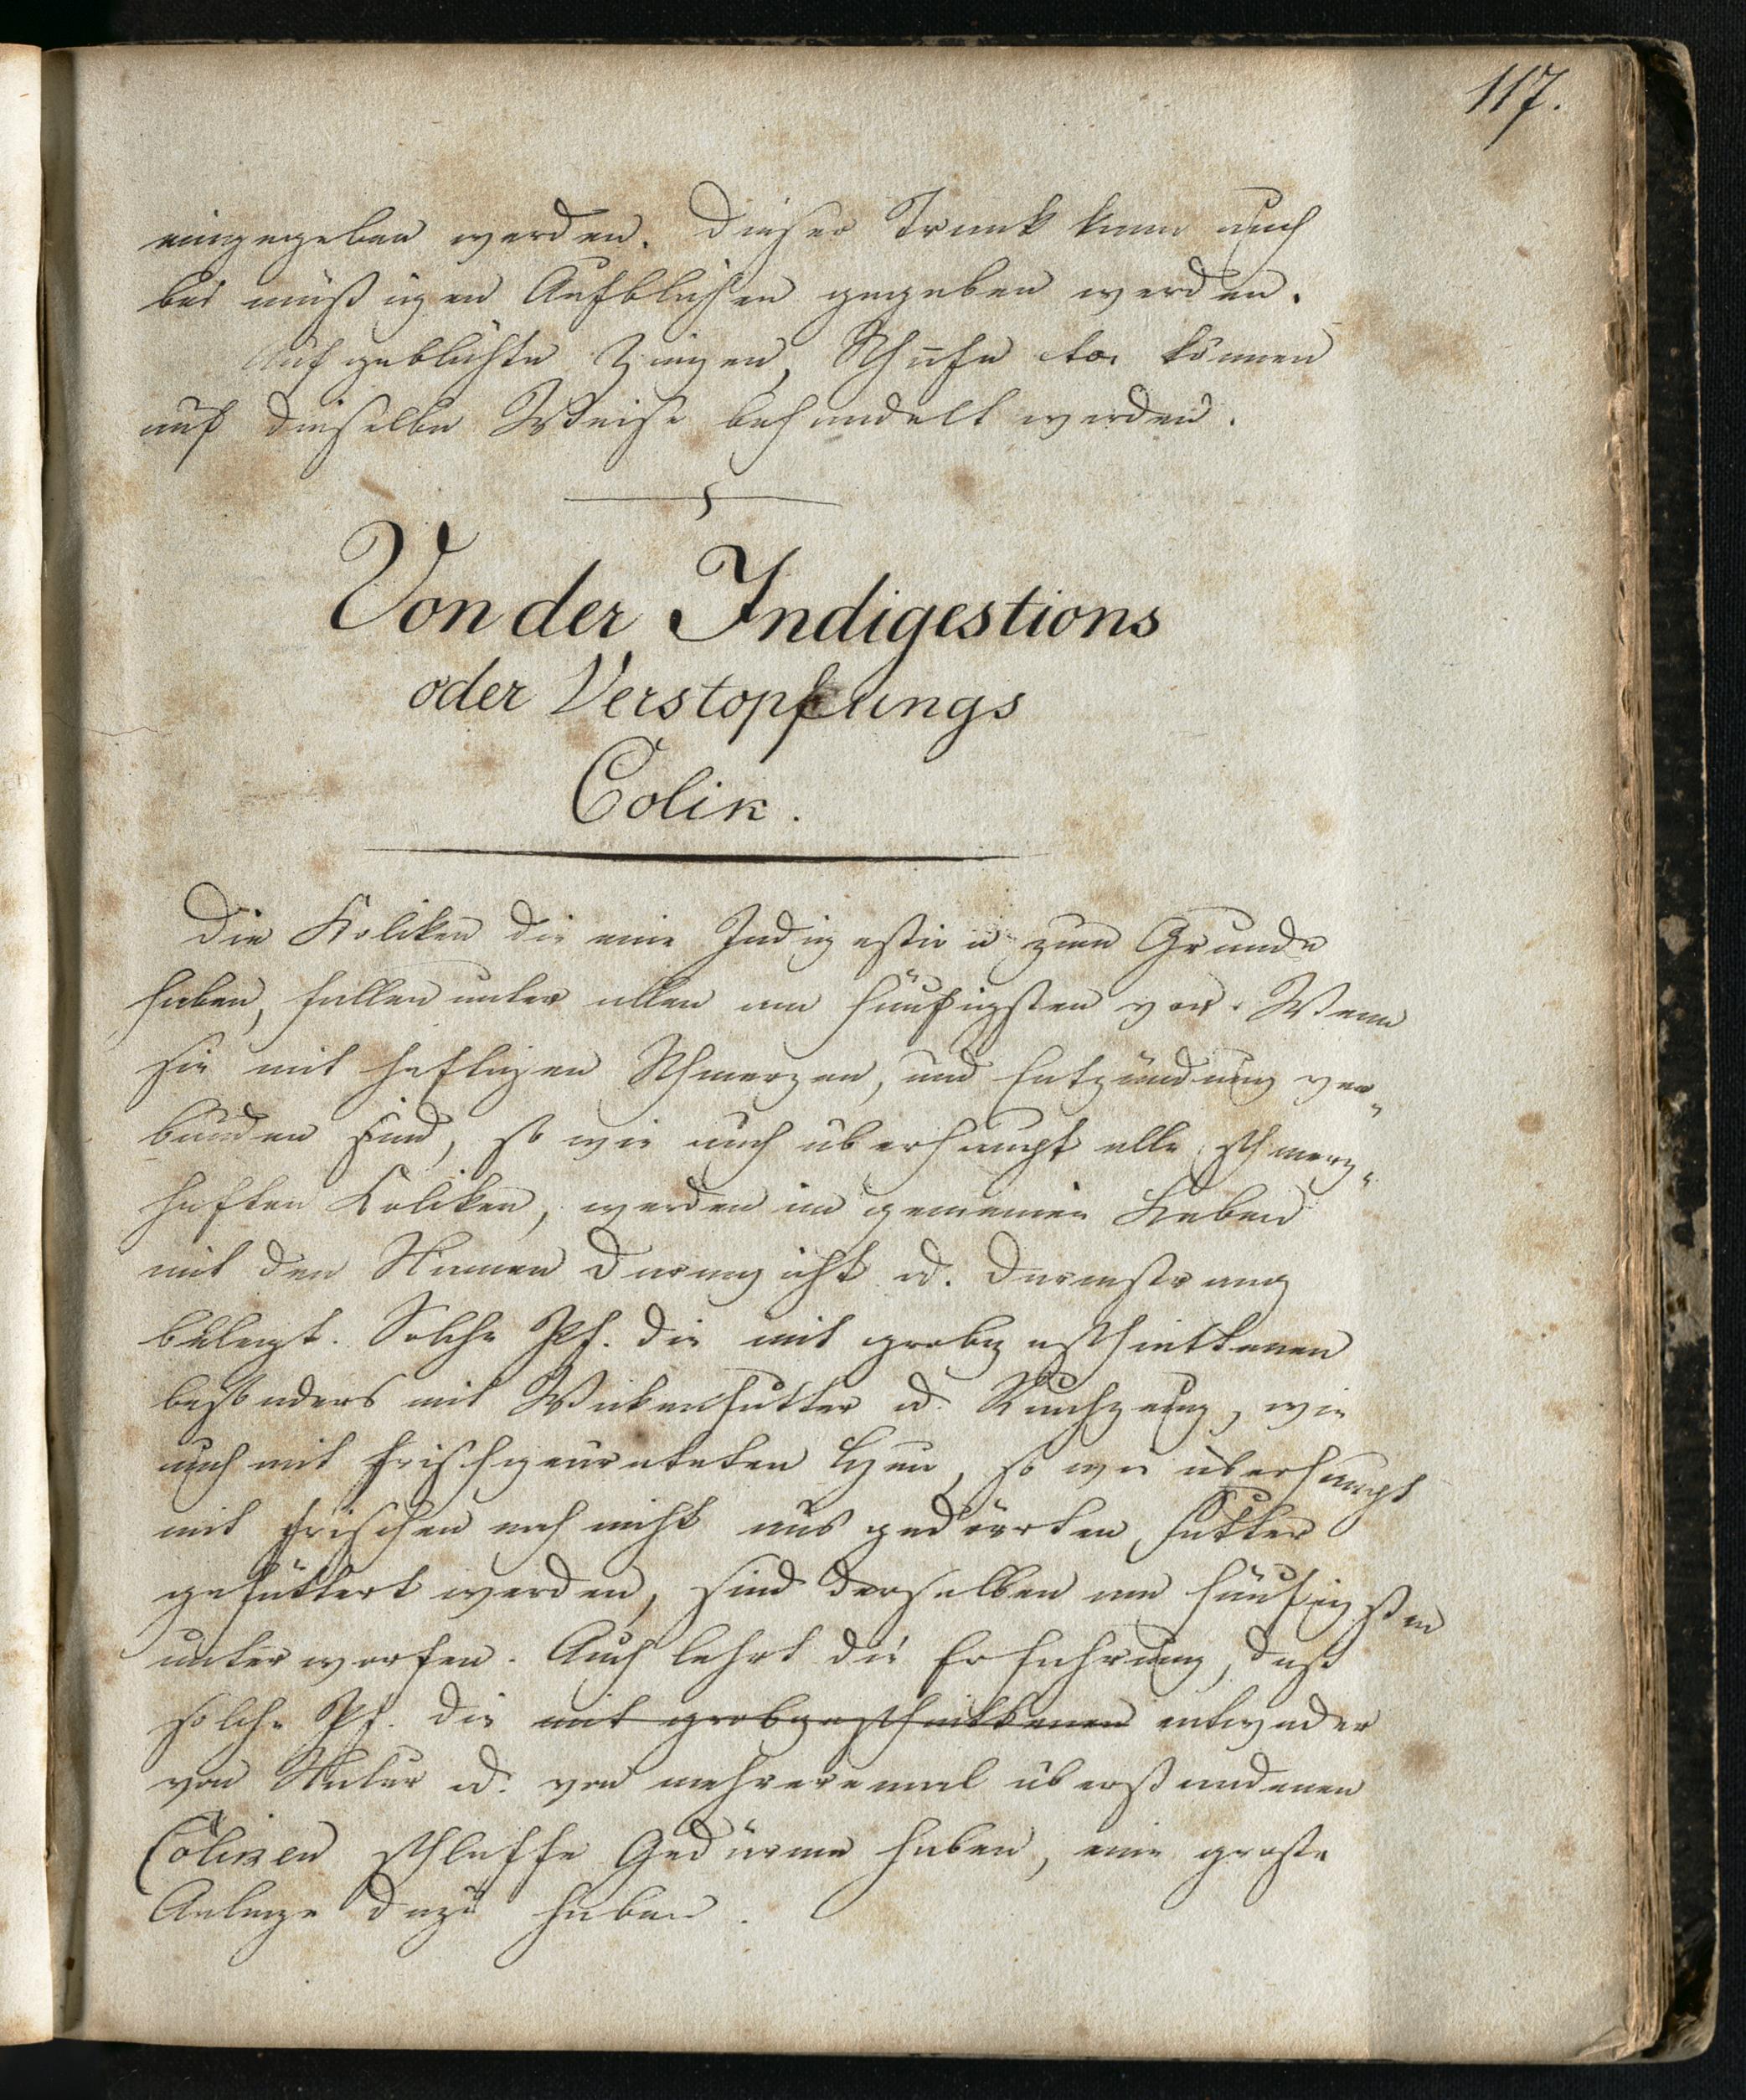 117.
eingegeben werden. Dieser Trank kann auch
bei mäßigen Aufblähen gegeben werden.
Aufgeblähte Ziegen, Schafe etc. können
auf dieselbe Weise behandelt werden.
Von der Indigestions
oder Verstopfungs
Colik.
Die Koliken die eine Indigestion zum Grunde
haben, fallen unter allen am häufigsten vor. Wenn
sie mit heftigen Schmerzen, und Entzündung ver„
bunden sind, so wie auch überhaupt alle schmerz„
haften Koliken, werden im gemeinen Leben
mit den Namen Darmgicht od. Darmstrang
belegt. Solche Pf. die mit grobgeschnittenen
besonders mit Wickenfutter od. Rauhzeug, wie
auch mit frischgeärnteten Heu, so wie überhaupt
mit frischen noch nicht ausgedörrten Futter
gefüttert werden, sind derselben am häufigsten
unterworfen. Auch lehrt die Erfahrung, daß
solche Pf. die mit grobgeschnittenen entweder
von Natur od. von mehreremal überstandenen
Coliken schlaffe Gedärme haben, eine große
Anlage dazu haben.